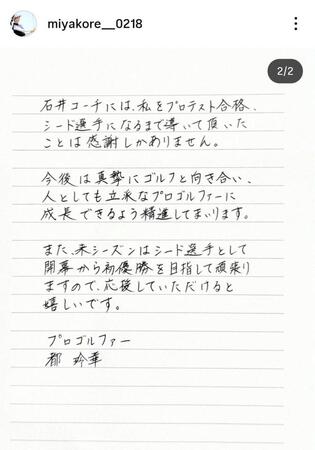 miyakore__0218
2/2
石井コーチには、私をプロテスト合格、
シード選手になるまで導いて頂いた
ことは感謝しかありません。
今後は真摯にゴルフと向き合い、
人としても立派なプロゴルファーに
成長できるよう精進してまいります。
また、来シーズンはシード選手として
開幕から初優勝を目指して頑張り
ますので、応援していただけると
嬉しいです。
プロゴルファー
都 玲華